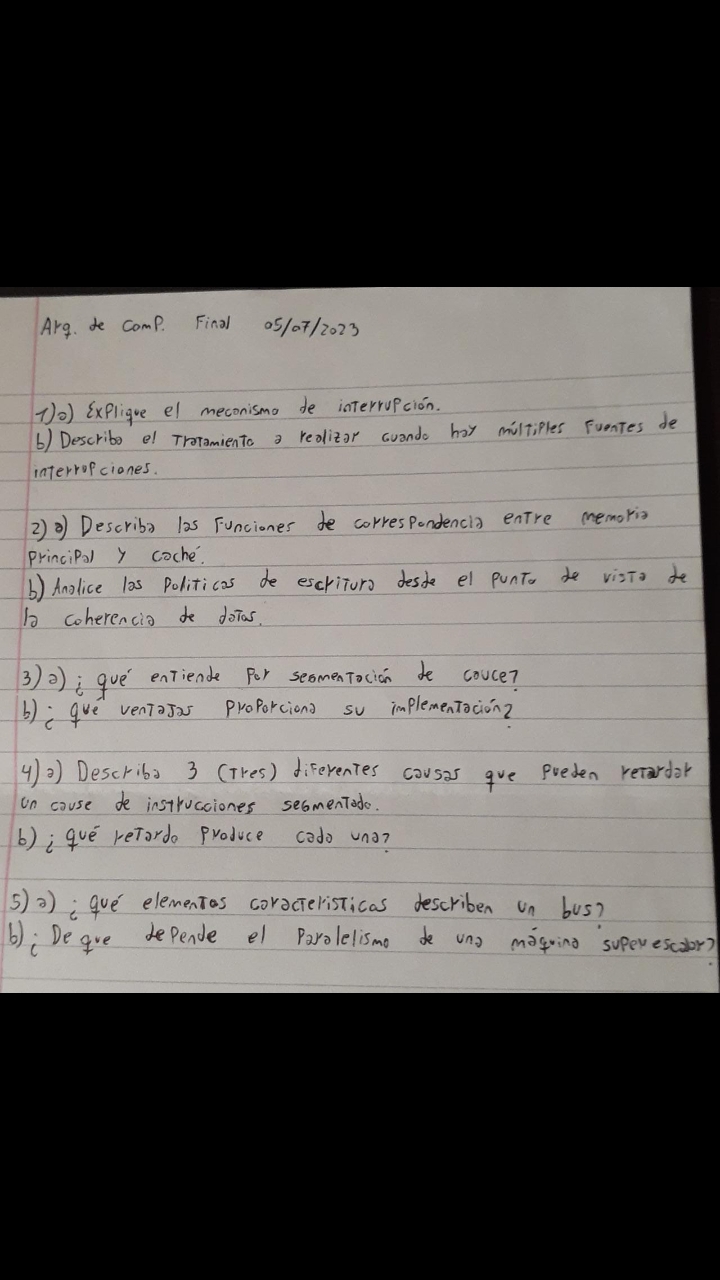 Arq. de Comp. Final 05/07/2023
1)a) Explique el mecanismo de interrupción.
b) Describa el Tratamiento a realizar cuando hay múltiples Fuentes de
interrupciones.
2) a) Describa las Funciones de correspondencia entre memoria
principal y caché.
b) Analice las Politicas de escritura desde el punto de vista de
la coherencia de datos.
3) a) ¿qué entiende por segmentación de couce?
b) ¿qué ventajas proporciona su implementación?
4) a) Describa 3 (tres) diferentes causas que pueden retardar
un cause de instrucciones segmentado.
b) ¿qué retardo produce cada una?
5) a) ¿qué elementos caracteristicos describen un bus?
b) ¿De que depende el paralelismo de una máquina superescalar?